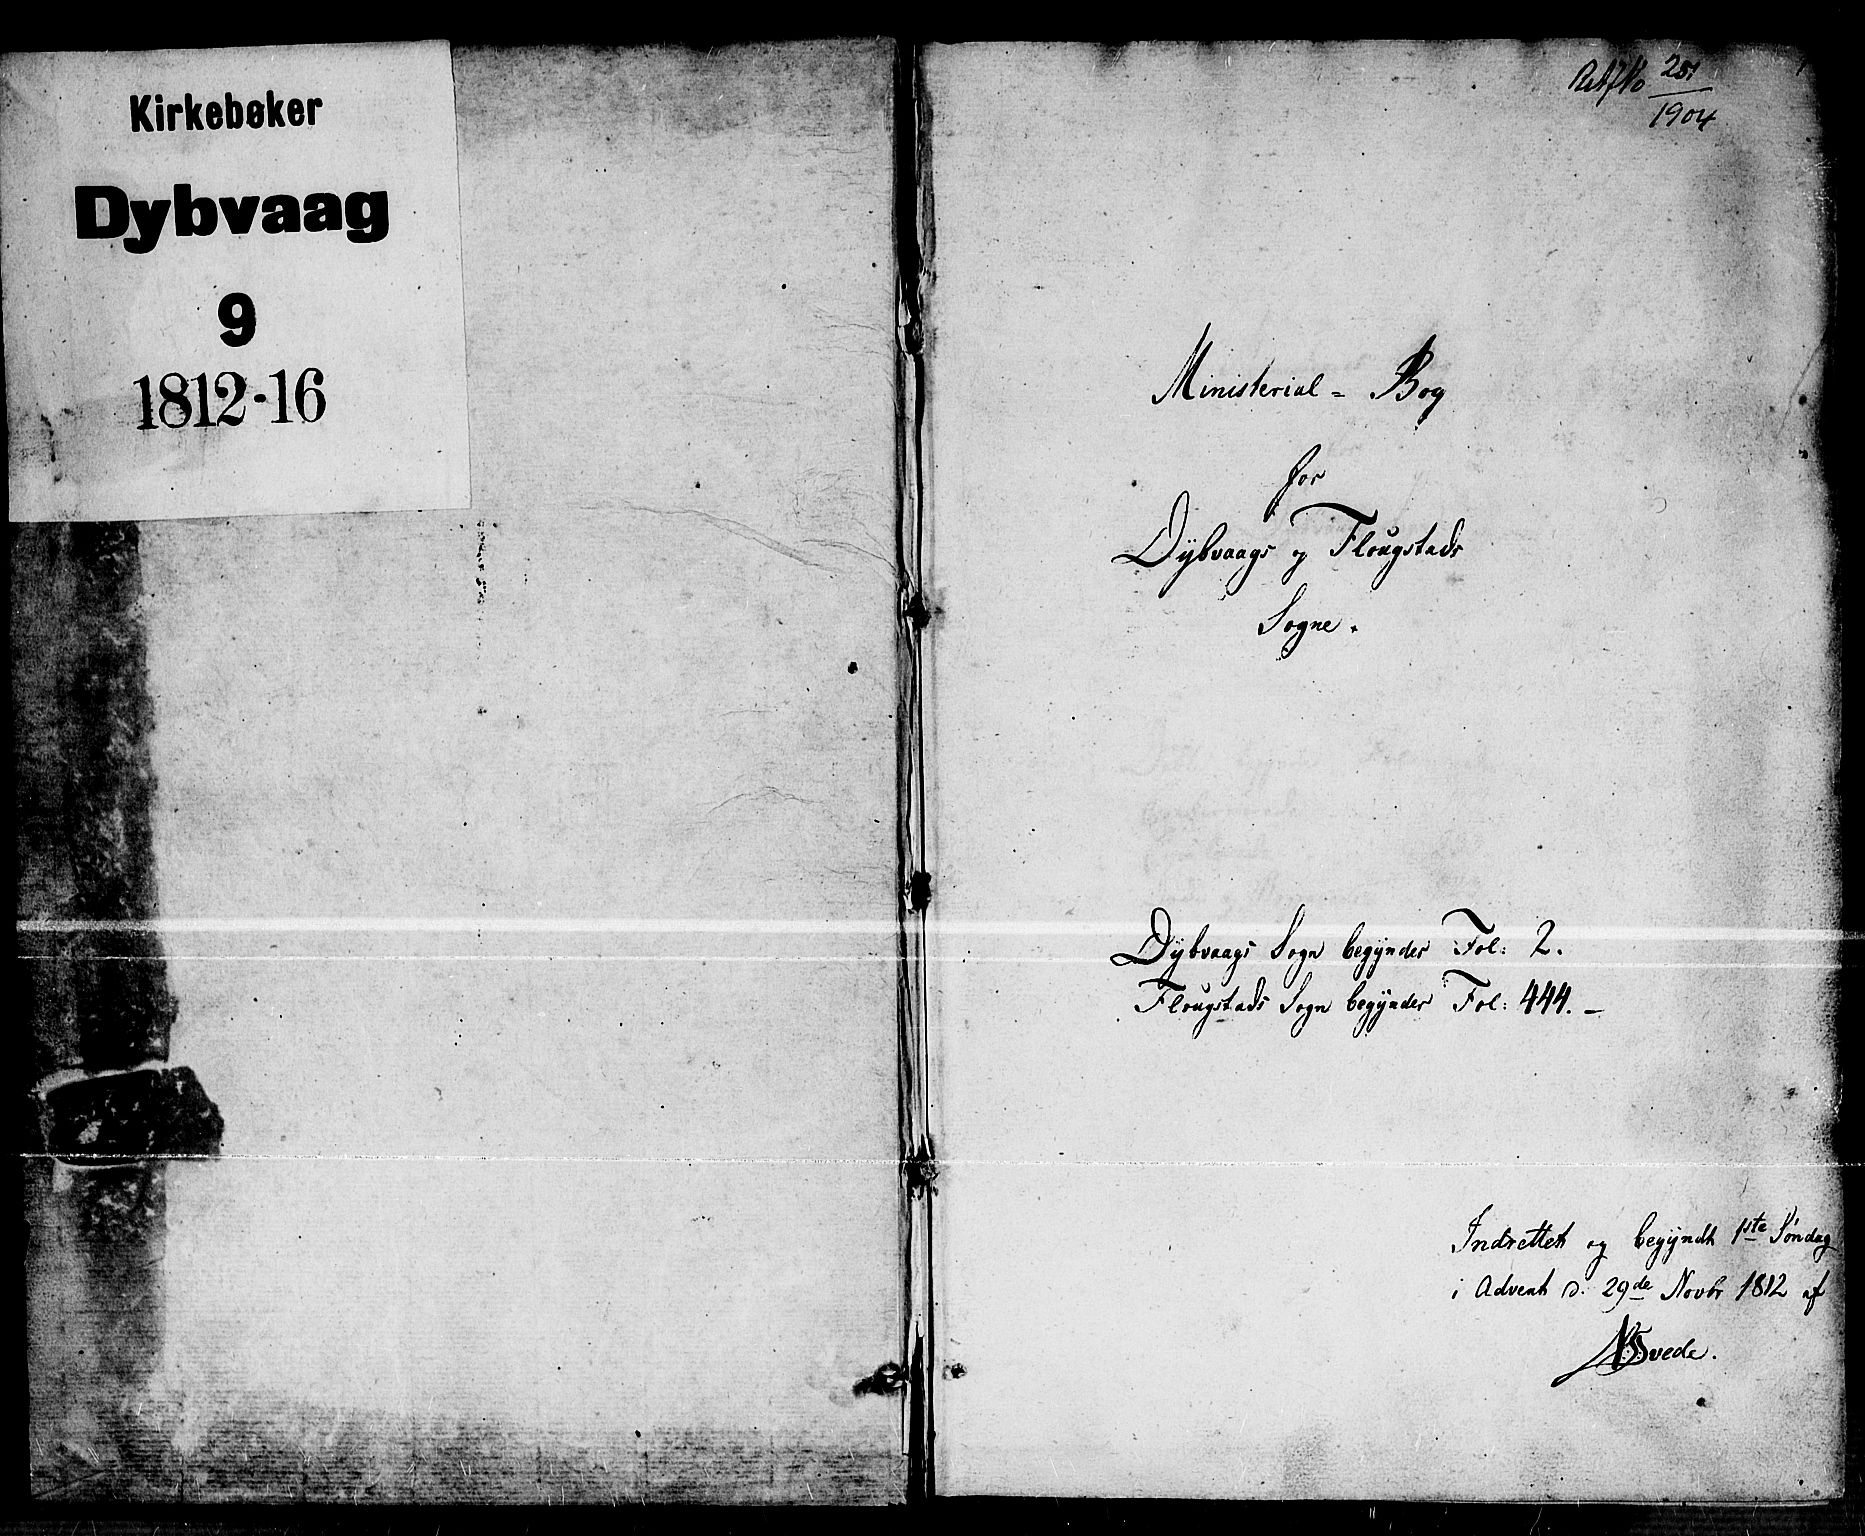 Kirkebøker
Dybvaag
9
1812-16
251
1904
Ministerial = Bog
for
Dybvaags og Flougstads
Sogne.
Dybvaags Sogn begÿnder Fol: 2.
Flougstads Sogn begÿnder Fol: 444. –
Indrettet og begÿndt 1ste Søndag
i Advent d. 29de Novbr 1812 af
Svede.